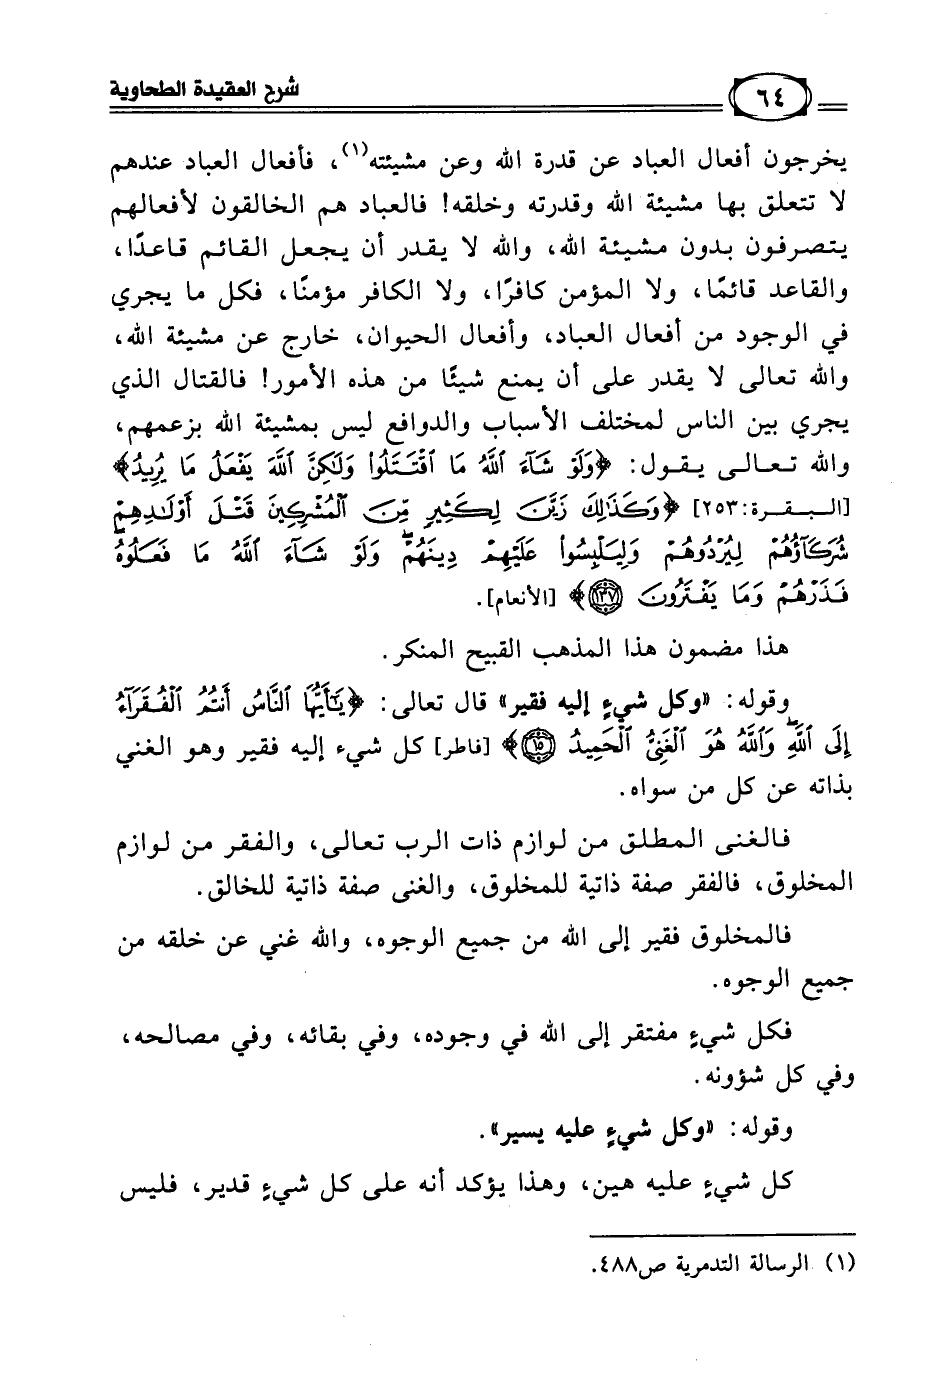 ٦٤
شرح العقيدة الطحاوية
يخرجون أفعال العباد عن قدرة الله وعن مشيئته(١)، فأفعال العباد عندهم
لا تتعلق بها مشيئة الله وقدرته وخلقه! فالعباد هم الخالقون لأفعالهم
يتصرفون بدون مشيئة الله، والله لا يقدر أن يجعل القائم قاعدًا،
والقاعد قائمًا، ولا المؤمن كافرًا، ولا الكافر مؤمنًا، فكل ما يجري
في الوجود من أفعال العباد، وأفعال الحيوان، خارج عن مشيئة الله،
والله تعالى لا يقدر على أن يمنع شيئًا من هذه الأمور! فالقتال الذي
يجري بين الناس لمختلف الأسباب والدوافع ليس بمشيئة الله بزعمهم،
والله تعالى يقول: ﴿وَلَوْ شَآءَ ٱللَّهُ مَا ٱقْتَتَلُوا۟ وَلَٰكِنَّ ٱللَّهَ يَفْعَلُ مَا يُرِيدُ﴾
[البقرة:٢٥٣] ﴿وَكَذَٰلِكَ زَيَّنَ لِكَثِيرٍ مِّنَ ٱلْمُشْرِكِينَ قَتْلَ أَوْلَٰدِهِمْ
شُرَكَآؤُهُمْ لِيُرْدُوهُمْ وَلِيَلْبِسُوا۟ عَلَيْهِمْ دِينَهُمْ ۖ وَلَوْ شَآءَ ٱللَّهُ مَا فَعَلُوهُ ۖ
فَذَرْهُمْ وَمَا يَفْتَرُونَ ۝١٣٧﴾ [الأنعام].
هذا مضمون هذا المذهب القبيح المنكر.
وقوله: «وكل شيءٍ إليه فقير» قال تعالى: ﴿يَٰٓأَيُّهَا ٱلنَّاسُ أَنتُمُ ٱلْفُقَرَآءُ
إِلَى ٱللَّهِ ۖ وَٱللَّهُ هُوَ ٱلْغَنِىُّ ٱلْحَمِيدُ ۝١٥﴾ [فاطر] كل شيء إليه فقير وهو الغني
بذاته عن كل من سواه.
فالغنى المطلق من لوازم ذات الرب تعالى، والفقر من لوازم
المخلوق، فالفقر صفة ذاتية للمخلوق، والغنى صفة ذاتية للخالق.
فالمخلوق فقير إلى الله من جميع الوجوه، والله غني عن خلقه من
جميع الوجوه.
فكل شيءٍ مفتقر إلى الله في وجوده، وفي بقائه، وفي مصالحه،
وفي كل شؤونه.
وقوله: «وكل شيءٍ عليه يسير».
كل شيءٍ عليه هين، وهذا يؤكد أنه على كل شيءٍ قدير، فليس
(١) الرسالة التدمرية ص٤٨٨.